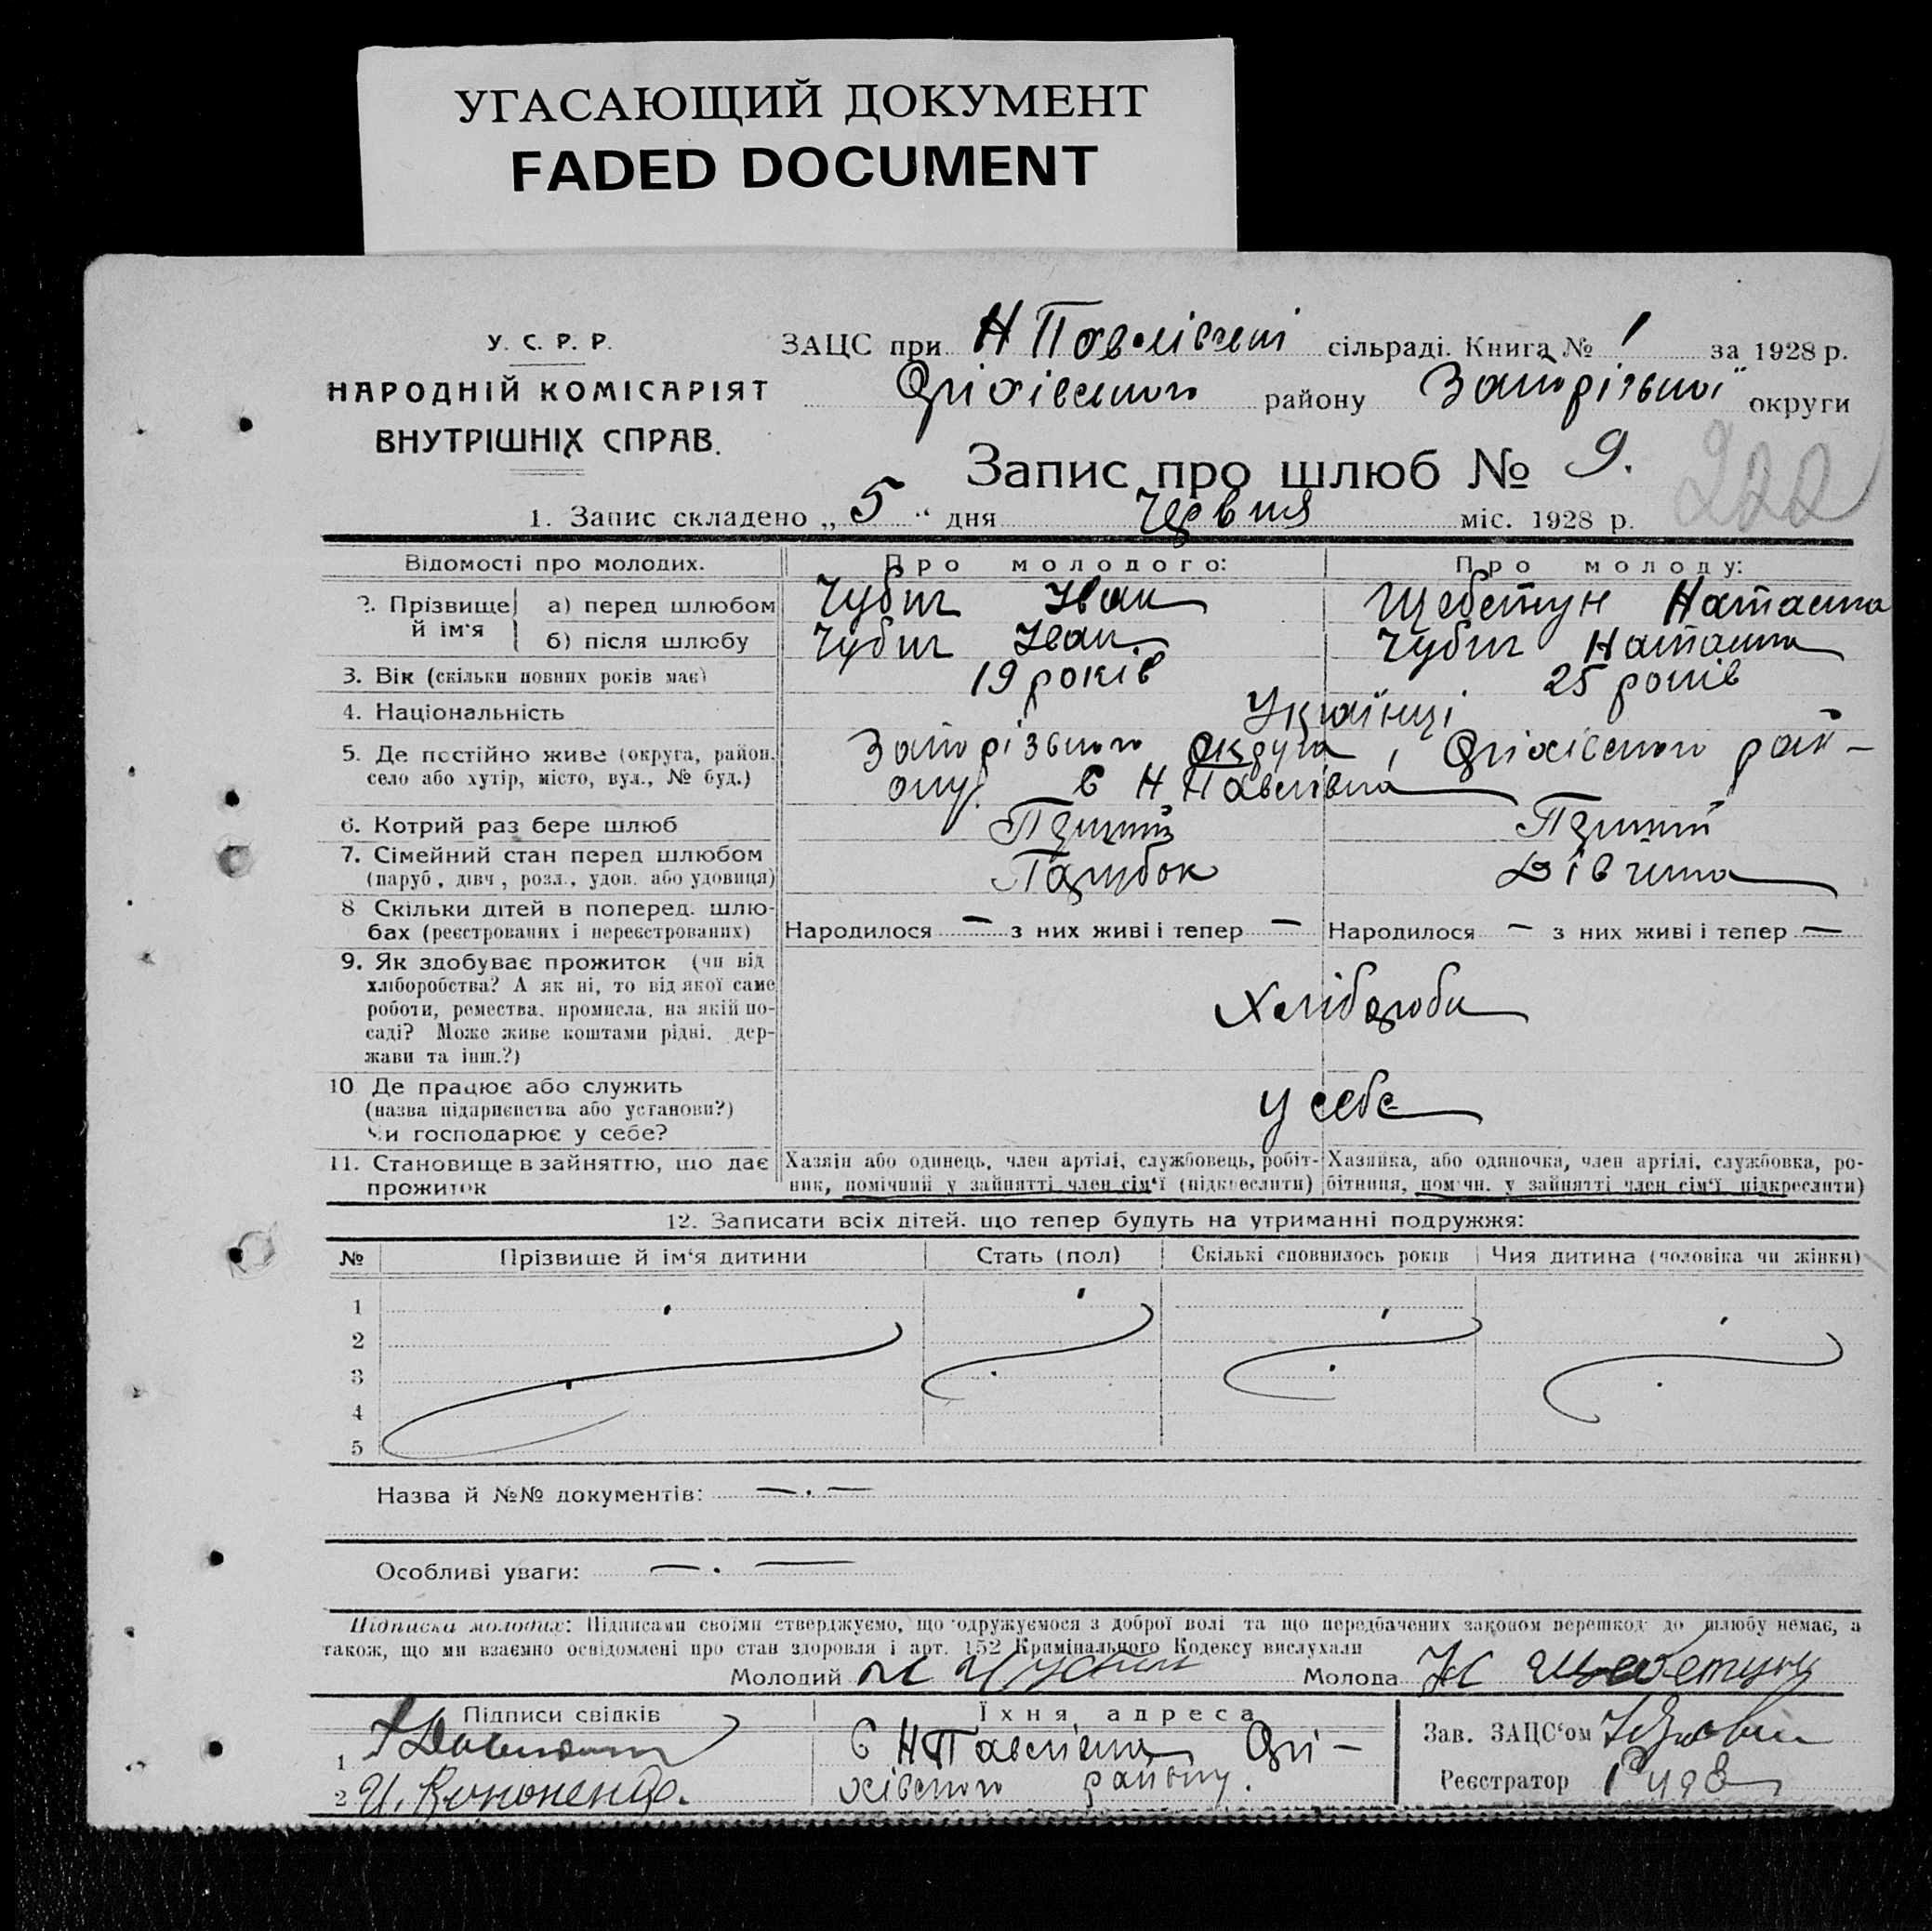 УГАСАЮЩИЙ ДОКУМЕНТ
FADED DOCUMENT
У. С. Р. Р.
НАРОДНІЙ КОМІСАРІЯТ
ВНУТРІШНІХ СПРАВ.
ЗАЦС при Н Павлівській сільраді. Книга № 1 за 1928 р.
Оріхівського району Запорізької округи
Запис про шлюб № 9.
222
1. Запис складено „ 5 “ дня Червня міс. 1928 р.
Відомості про молодих. Про молодого: Про молоду:
2. Прізвище й ім‘я а) перед шлюбом Чубич Іван Щебетун Наташка
б) після шлюбу Чубич Іван Чубич Наташка
3. Вік (скільки повних років має) 19 років 25 років
4. Національність Українці
5. Де постійно живе (округа, район, Запорізького округа, Оріхівського рай-
село або хутір, місто, вул., № буд.) ону. С Н Павлівка
6. Котрий раз бере шлюб Перший Перший
7. Сімейний стан перед шлюбом Парубок Дівчина
(паруб, дівч, розл., удов. або удовиця)
8 Скільки дітей в поперед. шлю-
бах (реєстрованих і нереєстрованих) Народилося — з них живі і тепер — Народилося — з них живі і тепер —
9. Як здобуває прожиток (чи від
хліборобства? А як ні, то від якої саме
роботи, ремества, промисла, на якій по- Хлібороби
саді? Може живе коштами рідні, дер-
жави та інш.?)
10 Де працює або служить
(назва підприємства або установи?) у себе
Чи господарює у себе?
11. Становище в зайняттю, що дає Хазяїн або одинець, член артілі, службовець, робіт- Хазяйка, або одиночка, член артілі, службовка, ро-
прожиток ник, помічний у зайнятті член сім‘ї (підкреслити) бітниця, помічн. у зайнятті член сім‘ї підкреслити)
12. Записати всіх дітей, що тепер будуть на утриманні подружжя:
№ Прізвище й ім‘я дитини Стать (пол) Скількі сповнилось років Чия дитина (чоловіка чи жінки)
1
2
3
4
5
Назва й №№ документів: —.—
Особливі уваги: —.—
Підписка молодих: Підписами своїми стверджуємо, що одружуємося з доброї волі та що передбачених законом перешкод до шлюбу немає, а
також, що ми взаємно освідомлені про стан здоровля і арт. 152 Кримінального Кодексу вислухали
Молодий Чубич Молода Н Щебетун
Підписи свідків Їхня адреса
1 С Н Павлівка Орі-
2 И. Кононенко. хівського району.
Зав. ЗАЦС‘ом
Реєстратор